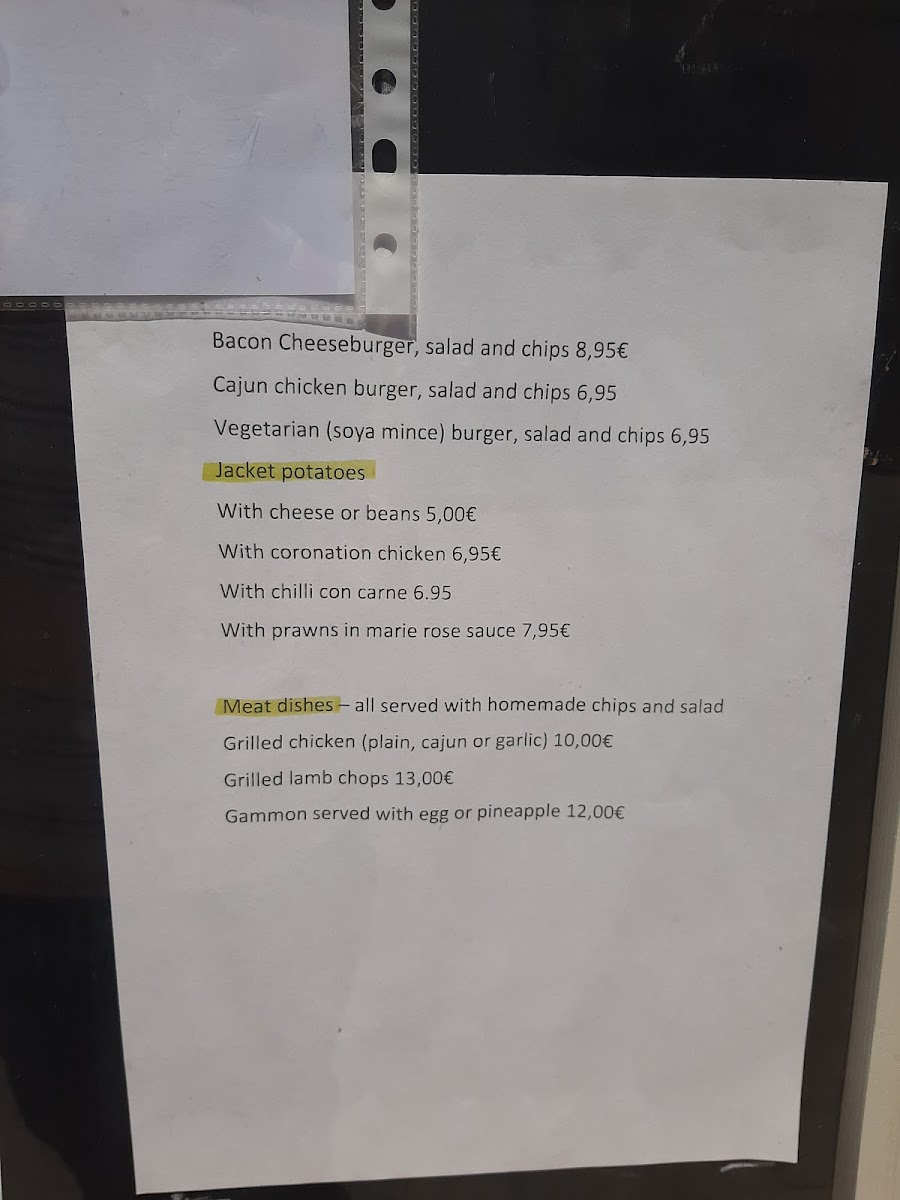 Bacon Cheeseburger, salad and chips 8,95€
Cajun chicken burger, salad and chips 6,95
Vegetarian (soya mince) burger, salad and chips 6,95
Jacket potatoes
With cheese or beans 5,00€
With coronation chicken 6,95€
With chilli con carne 6.95
With prawns in marie rose sauce 7,95€
Meat dishes – all served with homemade chips and salad
Grilled chicken (plain, cajun or garlic) 10,00€
Grilled lamb chops 13,00€
Gammon served with egg or pineapple 12,00€